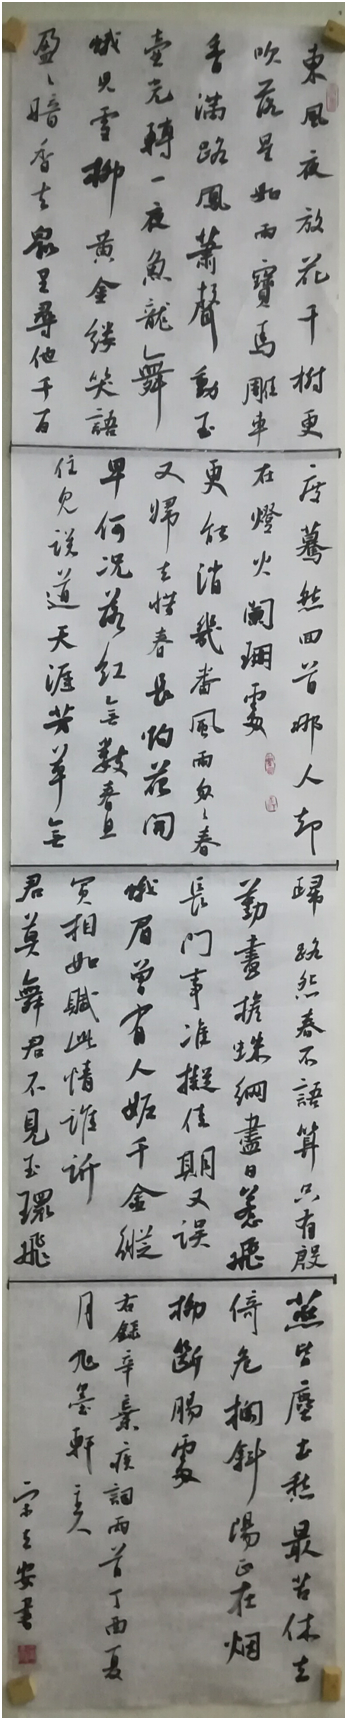 東風夜放花千樹更
吹落星如雨寶馬雕車
香滿路鳳蕭聲動玉
壺光轉一夜魚龍舞
蛾兒雪柳黃金縷笑語
盈〻暗香去衆里尋他千百
度驀然回首那人却
在燈火闌珊處
更能消幾番風雨匆〻春
又歸去惜春長怕花開
早何況落紅無數春且
住見説道天涯芳草無
歸路怨春不語算只有殷
勤畫檐蛛網盡日惹飛
長門事准擬佳期又误
蛾眉曾有人妬千金縱
買相如賦此情誰訴
君莫舞君不見玉環飛
燕皆塵土愁最苦休去
倚危欄斜陽正在烟
柳斷腸處
右錄辛棄疾詞兩首丁酉夏
月墨軒主人
宋安書